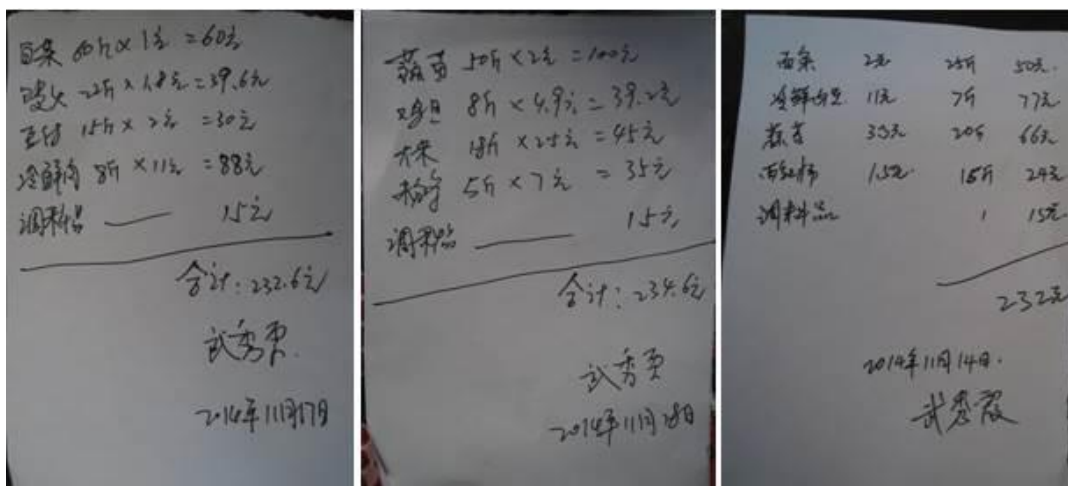 白菜 60斤×1元=60元
22斤×1.8元=39.6元
豆付 15斤×2元=30元
冷鲜肉 8斤×11元=88元
调料品 — 15元
合计:232.6元
武秀
2014年11月17日
蒜苔 50斤×2元=100元
鸡旦 8斤×4.9元=39.2元
大米 18斤×2.5元=45元
5斤×7元=35元
调料品 — 15元
合计:234.6元
武秀
2014年11月18日
2元 25斤 50元.
冷鲜肉 11元 7斤 77元
蒜苔 3.3元 20斤 66元
西红柿 1.5元 24元
调料品 1 15元
232元
2014年11月14日.
武秀霞